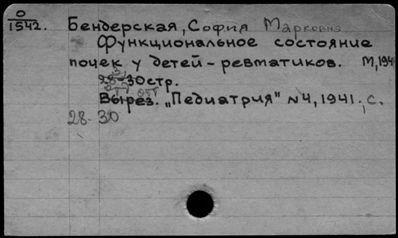 О
1542. Бендерская, София Марковна
Функциональное состояние
почек у детей-ревматиков. М, 194
28-30стр.
Вырез. „Педиатрия" №4, 1941. с.
28-30